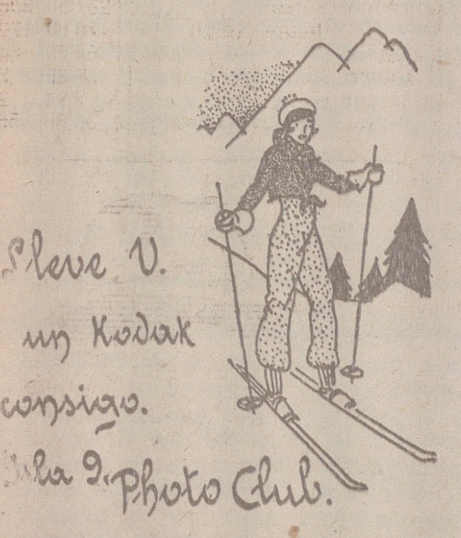 Lleve V.
un Kodak
consigo.
Photo Club.